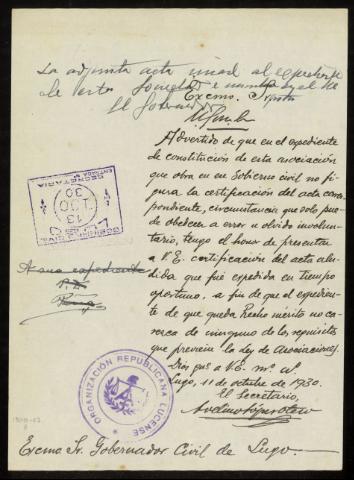 La adjunta acta únase al expediente
de esta Sociedad e
El Gobernador
Excmo. Señor
Advertido de que en el expediente
de constitución de esta asociación
que obra en ese Gobierno civil no fi-
gura la certificación del acta corres-
pondiente, circunstancia que solo pue-
de obedecer a error u olvido involun-
tario, tengo el honor de presentar
a V.E. certificación del acta alu-
dida que fué expedida en tiempo
oportuno, a fin de que el expedien-
te de que queda hecho mérito no ca-
rezca de ninguno de los requisitos
que previene la Ley de Asociaciones.
Dios gue a V.E. ms as
Lugo, 11 octubre de 1930.
El Secretario,
A su expediente
SECRETARIA
ENTRADA
30
13
ORGANIZACIÓN REPUBLICANA LUCENSE
Excmo Sr. Gobernador Civil de Lugo.